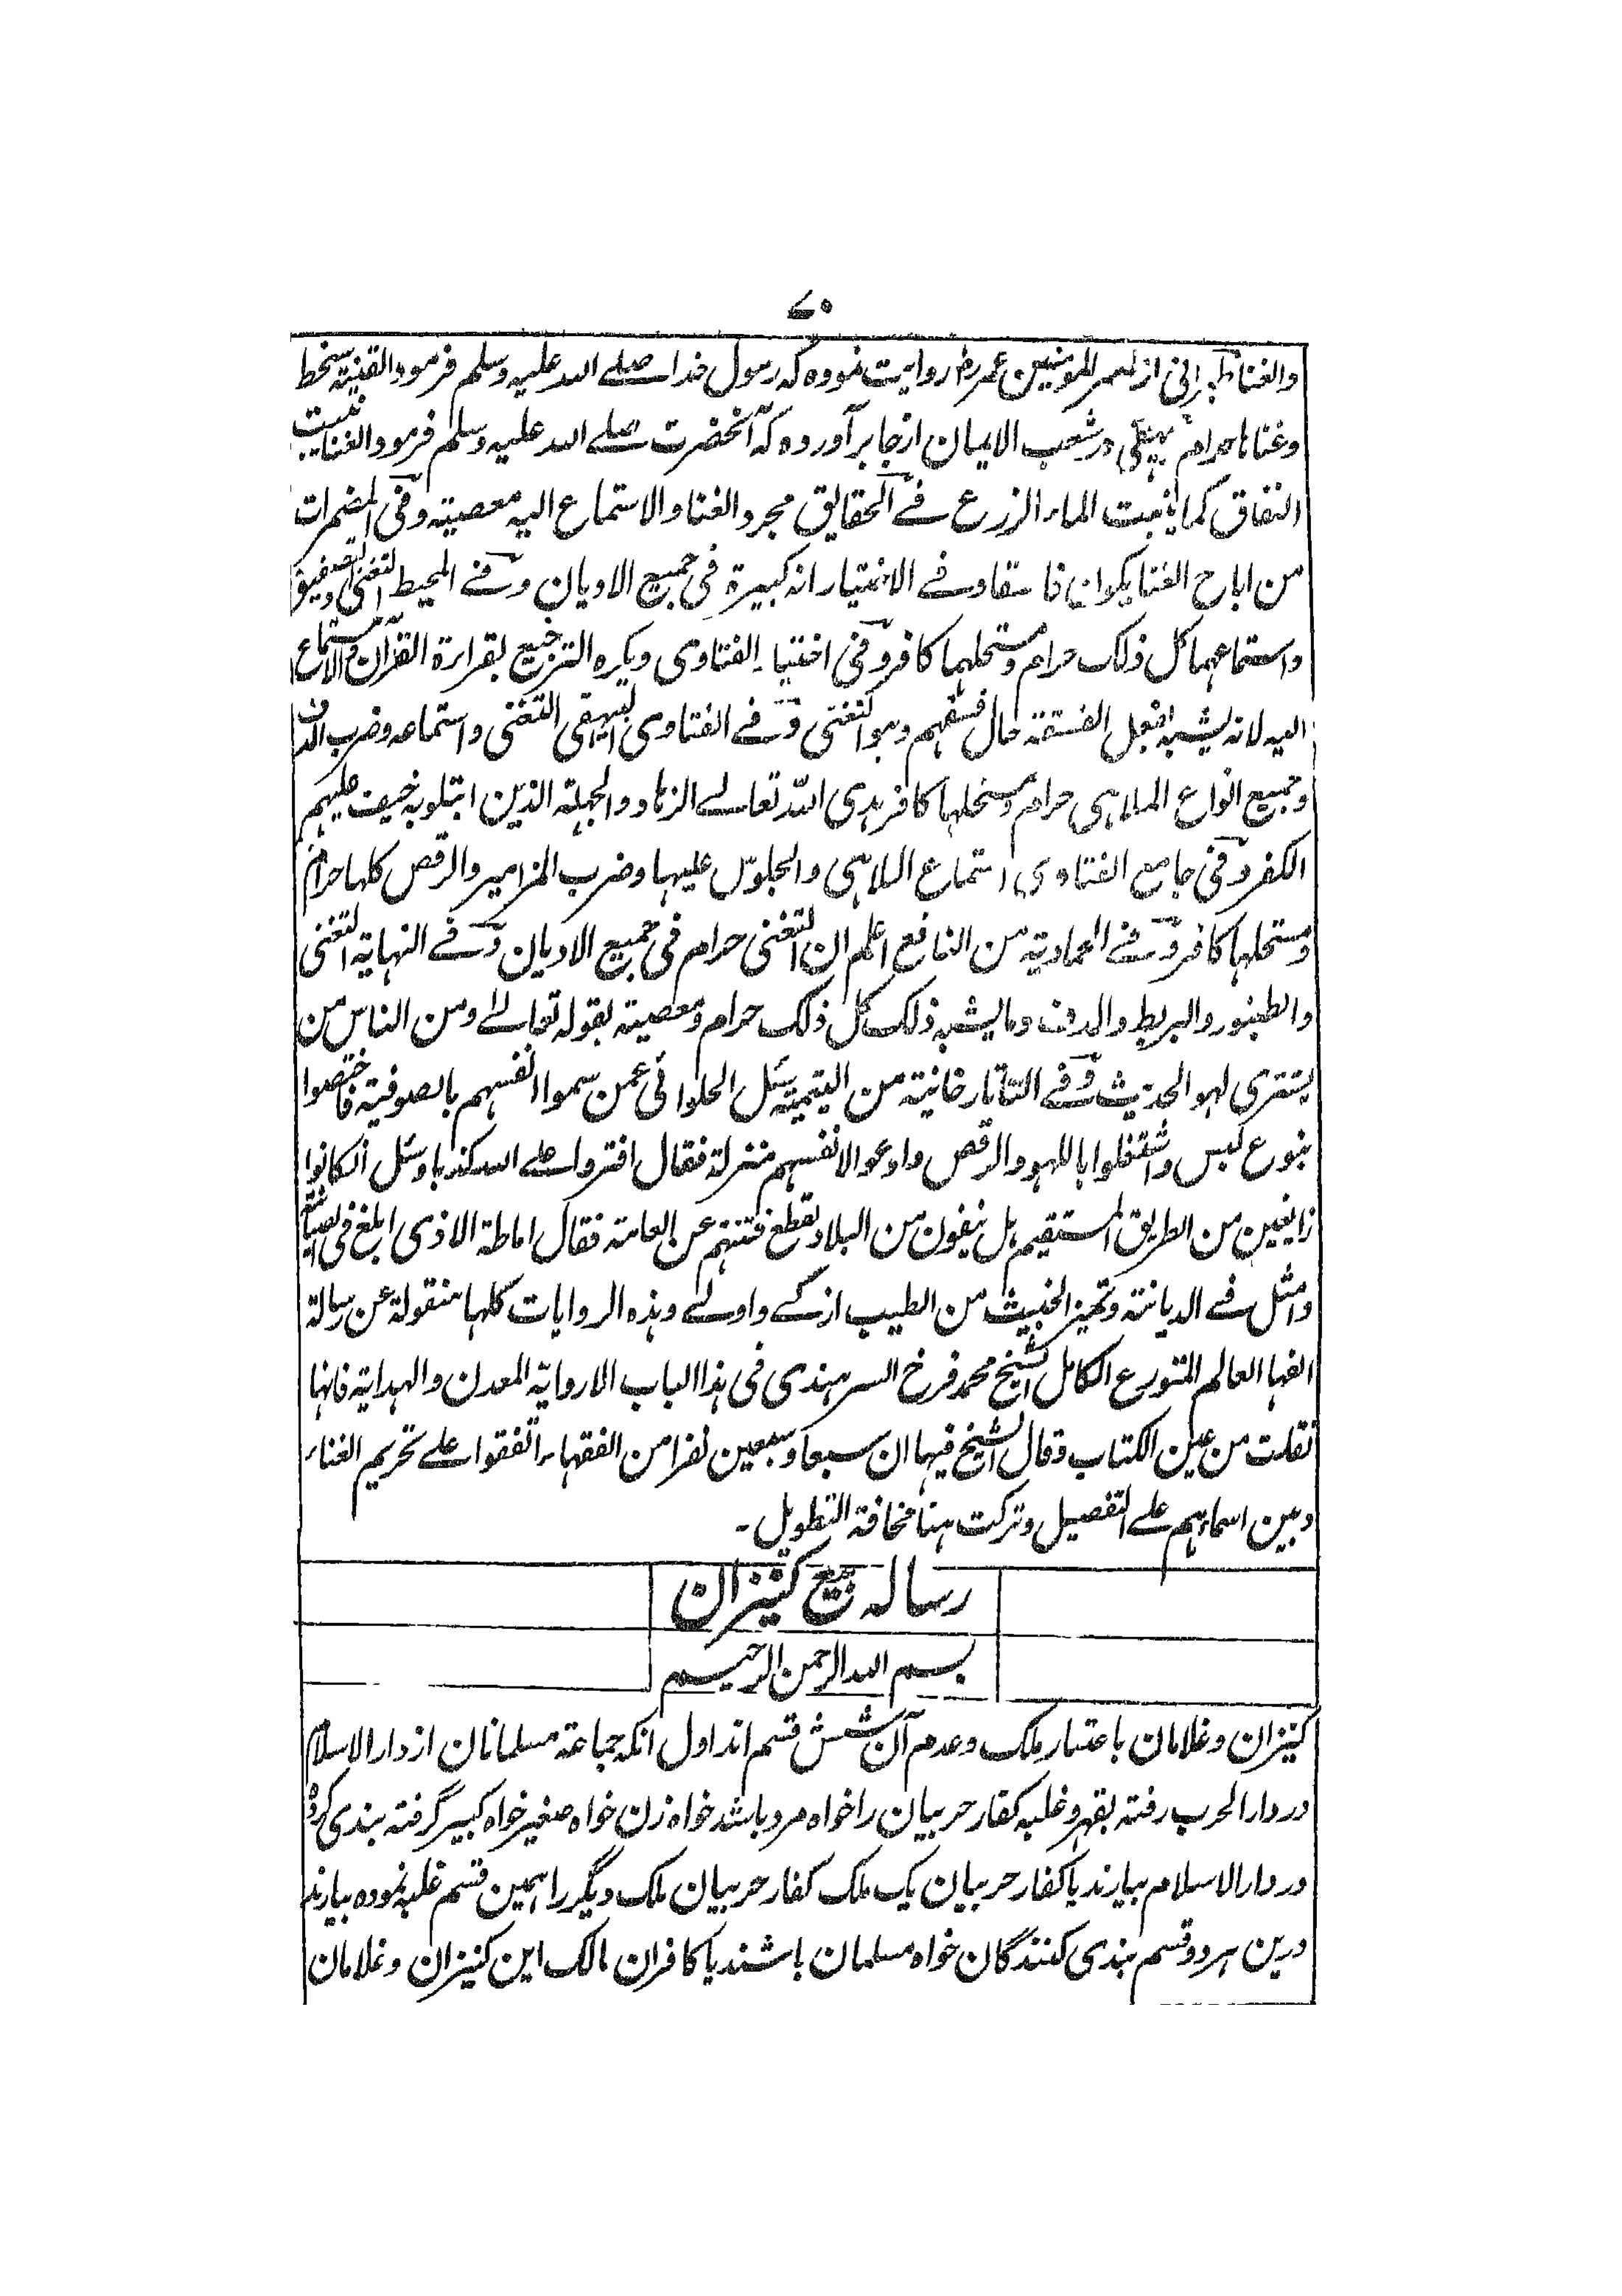 ۷۰
والغنا طبرانی از امیر المومنین عمر رض روایت نموده که رسول خدا صلے الله علیه وسلم فرمود القنیته سخط
وغنا ها حرام بیهقی در شعب الایمان از جابر آورده که آنحضرت صلے الله علیه وسلم فرمود الغنا ینبت
النفاق کما ینبت الماء الزرع فے الحقایق مجرد الغنا والاستماع الیه معصیته وفی المضمرات
من اباح الغنا یکون فاسقا وفے الاختیار انه کبیرة فی جمیع الادیان وفے المحیط التغنی والتصفیق
واستماعهما کل ذلک حرام ومستحلهما کافر وفی اختیار الفتاوی ویکره الترجیع بقراءة القرآن والاستماع
الیه لانه یشبه بفعل الفسقته حال فسقهم وهو التغنی وفے الفتاوی البیهقی التغنی واستماعه وضرب الدف
وجمیع انواع الملاهی حرام ومستحلها کافر یهدی الله تعالے الزهاد والجهلته الذین ابتلوا به خیف علیهم
الکفر وفی جامع الفتاوی استماع الملاهی والجلوس علیها وضرب المزامیر والرقص کلها حرام
ومستحلها کافر وفے العمادیته من النافع اعلم ان التغنی حرام فی جمیع الادیان وفے النهایته التغنی
والطنبور والبربط والدف وما یشبه ذلک کل ذلک حرام ومعصیته بقوله تعالے ومن الناس من
یشتری لهو الحدیث وفے التاتارخانیته من الیتیمته سئل الحلوانی عمن سموا انفسهم بالصوفیته فاختصوا
بنوع لبس واشتغلوا باللهو والرقص وادعوا لانفسهم منزلة فقال افتروا علے الله کذبا وسئل ان کانوا
زایغین من الطریق المستقیم هل ینفون من البلاد لقطع فتنتهم عن العامته فقال اماطة الاذی ابلغ فی الصیانته
وامثل فے الدیانته وتمیز الخبیث من الطیب ازکے واولے وهذه الروایات کلها منقولة عن رسالة
الفها العالم المتورع الکامل الشیخ محمد فرخ السرهندی فی هذا الباب الا روایة المعدن والهدایته فانها
نقلت من عین الکتاب وقال الشیخ فیها ان سبعا وسبعین نفرا من الفقهاء اتفقوا علے تحریم الغناء
وبین اسماءهم علے التفصیل وترکت هنا مخافة التطویل۔
رساله بیع کنیزان
بسم الله الرحمن الرحیم
کنیزان وغلامان باعتبار ملک وعدم آن شش قسم اند اول آنکه جماعته مسلمانان از دارالاسلام
در دارالحرب رفته بقهر وغلبه کفار حربیان را خواه مرد باشد خواه زن خواه صغیر خواه کبیر گرفته بندی کرده
در دارالاسلام بیارند یا کفار حربیان یک ملک کفار حربیان ملک دیگر را همین قسم غلبه نموده بیارند
درین هر دو قسم بندی کنندگان خواه مسلمان باشند یا کافران مالک این کنیزان وغلامان